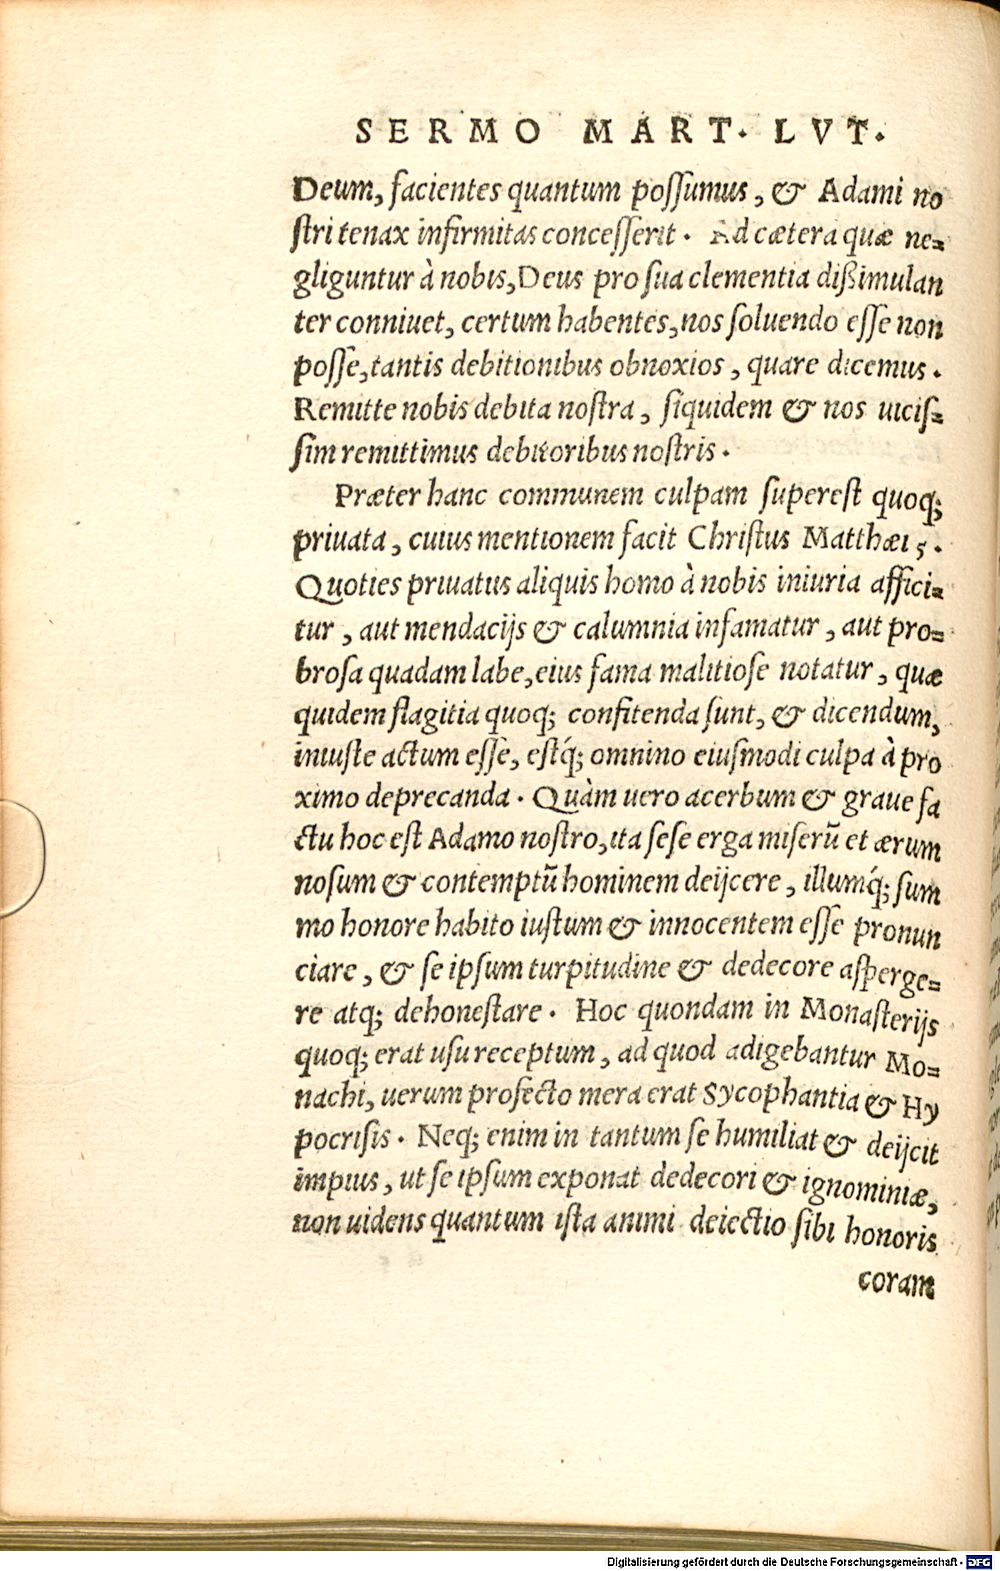 SERMO MART. LVT.
Deum, facientes quantum possumus, & Adami no
stri tenax infirmitas concesserit. Ad cætera quæ ne=
gliguntur à nobis, Deus pro sua clementia dißimulan
ter conniuet, certum habentes, nos soluendo esse non
posse, tantis debitionibus obnoxios, quare dicemus.
Remitte nobis debita nostra, siquidem & nos uicis=
sim remittimus debitoribus nostris.
Præter hanc communem culpam superest quoq;
priuata, cuius mentionem facit Christus Matthæi 5.
Quoties priuatus aliquis homo à nobis iniuria affici=
tur, aut mendacijs & calumnia infamatur, aut pro=
brosa quadam labe, eius fama malitiose notatur, quæ
quidem flagitia quoq; confitenda sunt, & dicendum,
iniuste actum esse, estq́; omnino eiusmodi culpa à pro
ximo deprecanda. Quàm uero acerbum & graue fa
ctu hoc est Adamo nostro, ita sese erga miserũ et ærum
nosum & contemptũ hominem deijcere, illumq́; sum
mo honore habito iustum & innocentem esse pronun
ciare, & se ipsum turpitudine & dedecore asperge=
re atq; dehonestare. Hoc quondam in Monasterijs
quoq; erat usu receptum, ad quod adigebantur Mo=
nachi, uerum profecto mera erat Sycophantia & Hy
pocrisis. Neq; enim in tantum se humiliat & deijcit
impius, ut se ipsum exponat dedecori & ignominiæ,
non uidens quantum ista animi deiectio sibi honoris
coram
Digitalisierung gefördert durch die Deutsche Forschungsgemeinschaft - DFG